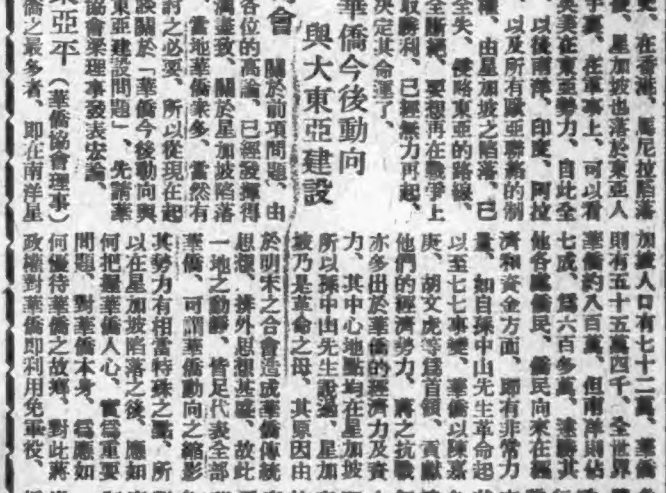 在香港、馬尼拉陷落
、星加坡也落於東亞人
手裏、在軍事上、可以看
英美在東亞勢力、自此全
以後南洋、印度、阿拉
、以及所有歐亞聯絡的制
權、由星加坡之陷落、已
全失、侵略東亞的路線、
全斷絕、要想再在戰爭上
取勝利、已經無力再起、
決定其命運了、
華僑今後動向
與大東亞建設
會 關於前項問題、由
各位的高論、已經發揮得
漓盡致、關於星加坡陷落
、當地華僑衆多、當然有
討之必要、所以從現在起
談關於「華僑今後動向與
東亞建設問題」、先請華
協會梁理事發表宏論、
東亞平(華僑協會理事)
僑之最多者、即在南洋星
加坡人口有七十二萬、華僑
則有五十五萬四千、全世界
華僑約八百萬、但南洋則佔
七成、爲六百多萬、遠勝其
他各處僑民、僑民向來在經
濟和資金方面、即有非常力
量、如自孫中山先生革命起
以至七七事變、華僑以陳嘉
庚、胡文虎等爲首領、貢獻
他們的經濟勢力、蔣之抗戰
亦多出於華僑的經濟力及資
力、其中心地點均在星加坡
所以孫中山先生說過、星加
坡乃是革命之母、其原因由
於明末之合會造成華僑傳統
思想、排外思想甚盛、故此
一地之動靜、皆足代表全部
華僑、可謂華僑動向之縮影
其勢力有相當特殊之點、所
以在星加坡陷落之後、應如
何把握華僑人心、實爲重要
問題、對華僑本身、爲應如
何優待華僑之故鄉、對此蔣
政權對華僑即利用免軍役、